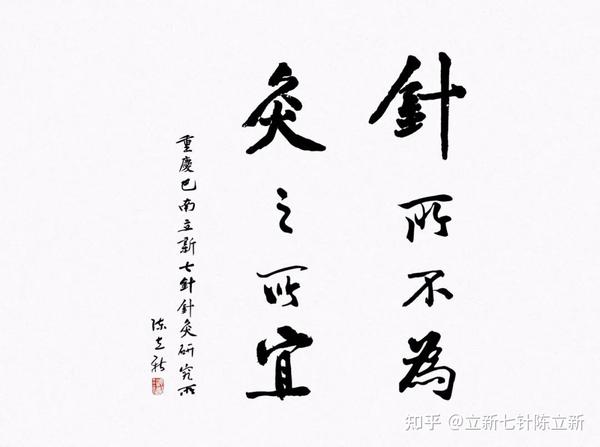 針所不為
灸之所宜
重慶巴南立新七針針灸研究所
陈立新
知乎 @立新七针陈立新